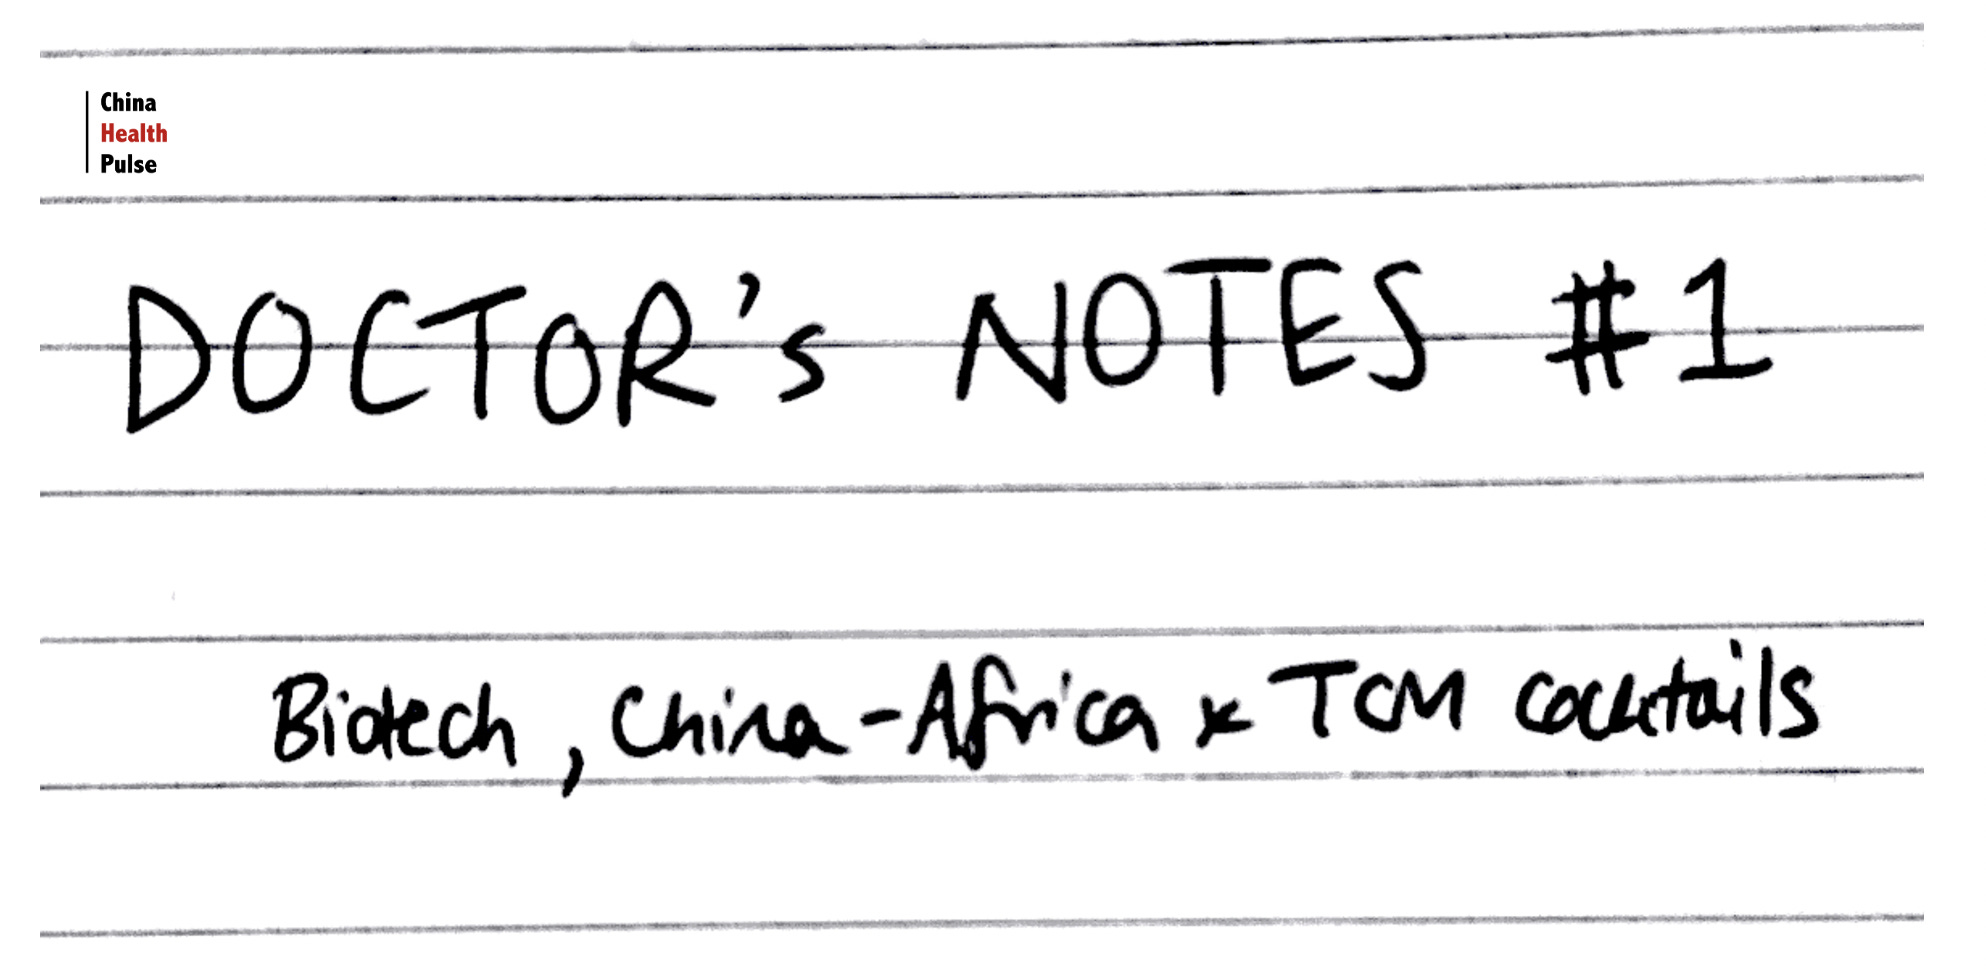 China
Health
Pulse
DOCTOR's NOTES #1
Biotech, China-Africa x TCM cocktails